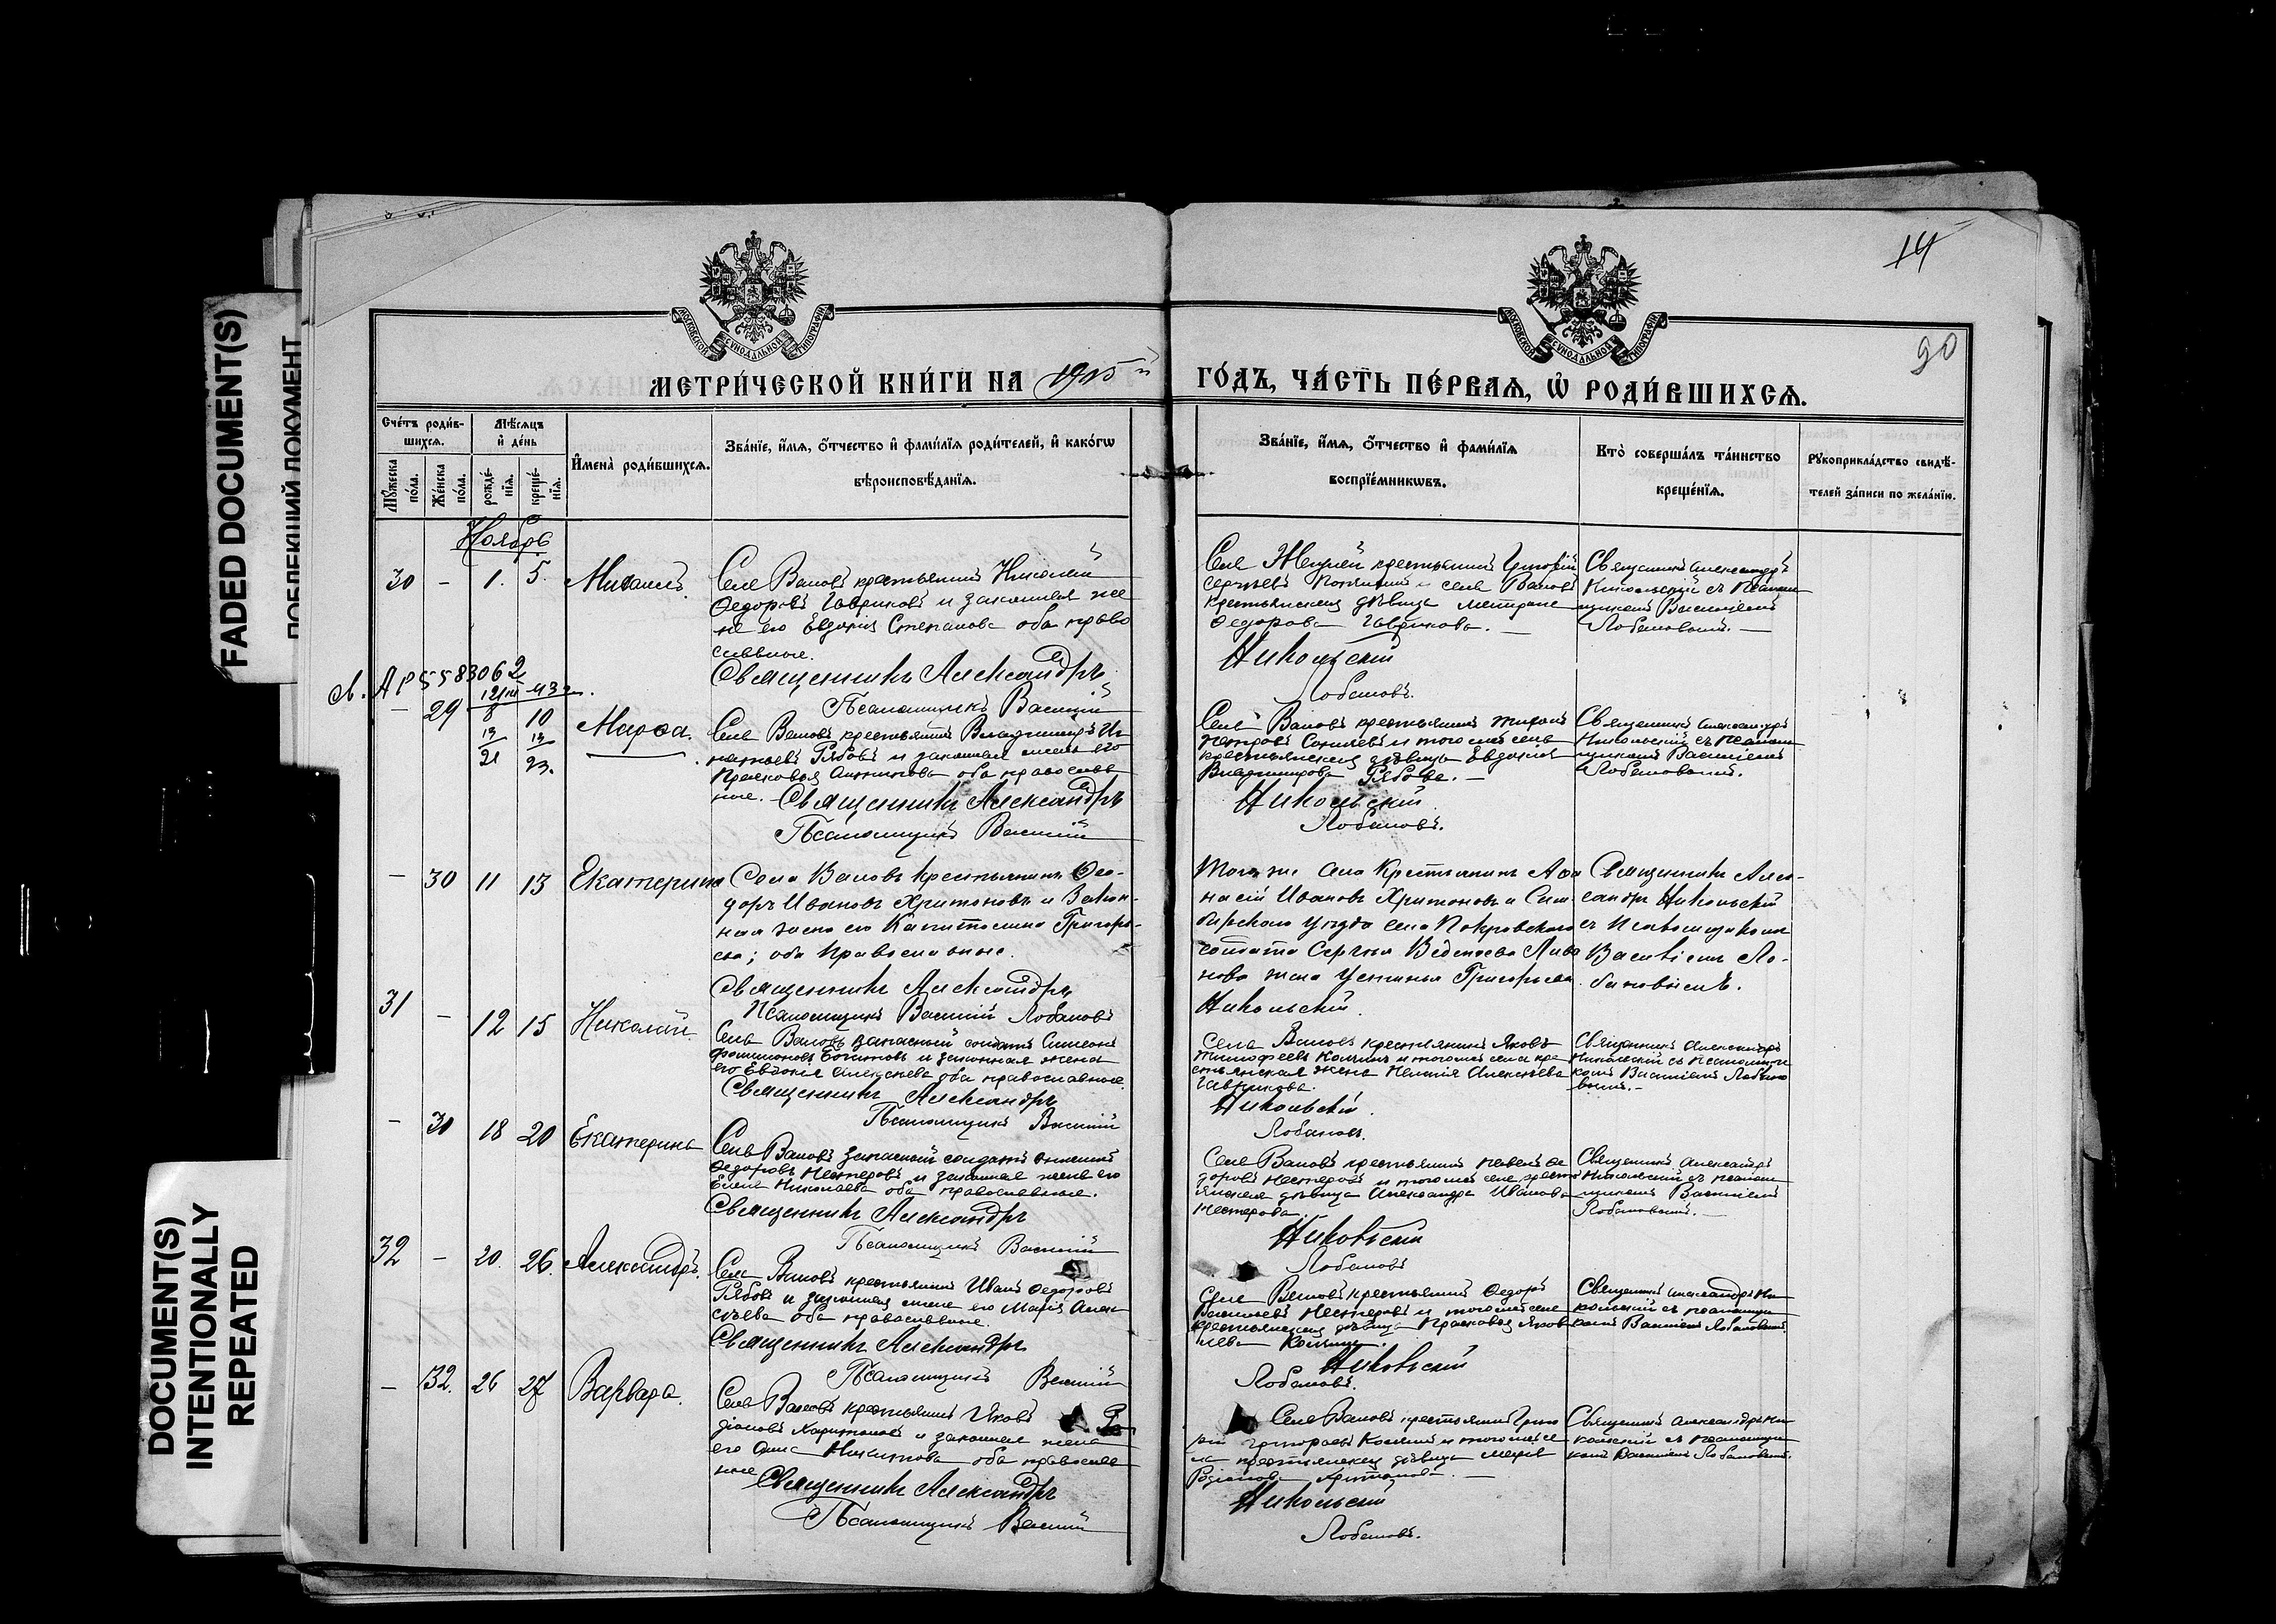 FADED DOCUMENT(S)
DOCUMENT(S)
INTENTIONALLY
REPEATED
14
90
МОСКОВСКОЙ СѴНОДАЛЬНОЙ ТИПОГРАФІИ
МОСКОВСКОЙ СѴНОДАЛЬНОЙ ТИПОГРАФІИ
МЕТРИ́ЧЕСКОЙ КНИ́ГИ НА 1915 й
ГО́ДЪ, ЧА́СТЬ ПЕ́РВАѦ, Ѡ РОДИ́ВШИХСѦ.
Сче́тъ роди́в-
шихся.
Мѣ́сяцъ
и҆ де́нь
Мꙋ́жеска
по́ла.
Же́нска
по́ла.
рожде́-
нїя.
креще́-
нїя.
И҆мена̀ роди́вшихся.
Зва́нїе, и҆́мя, ѻ҆́тчество и҆ фами́лїя роди́телей, и҆ како́гѡ
вѣроисповѣ́данїя.
Зва́нїе, и҆́мя, ѻ҆́тчество и҆ фами́лїя
воспрїе́мникѡвъ.
Кто̀ соверша́лъ та́инство
креще́нїя.
Рꙋкоприкла́дство свидѣ́-
телей за́писи по жела́нїю.
Ноябрь
30 – 1. 5. Михаилъ.
Села Валовъ крестьянинъ Николай
Ѳедоровъ Гавриковъ и законная же
на его Евдокія Степанова оба право
славные.
Священникъ Александръ
Псаломщикъ Василій
крестьянинъ
Сергѣевъ и села Валовъ
крестьянская дѣвица
Ѳедорова Гаврикова.
Никольскій
Лобановъ.
Священникъ Александръ
Никольскій съ псалом
щикомъ Василіемъ
Лобановымъ.
– 29 8 10 Марѳа.
21 23.
Села Валовъ крестьянинъ Владимиръ Иг
натьевъ Рябовъ и законная жена его
Прасковья оба православ
ные. Священникъ Александръ
Псаломщикъ Василій
Села Валовъ крестьянинъ
Петровъ и того же села
крестьянская дѣвица Евдокія
Владимирова Рябова.
Никольскій
Лобановъ.
Священникъ Александръ
Никольскій съ псалом
щикомъ Василіемъ
Лобановымъ.
– 30 11 13 Екатерина
Села Валовъ Крестьянинъ Ѳео-
доръ Ивановъ Харитоновъ и Закон-
ная жена его Капитолина Григорь-
ева; оба Православные.
Священникъ Александръ
Псаломщикъ Василій Лобановъ
Того же Села Крестьянинъ Аѳа
насій Ивановъ Харитоновъ и Сим
бирскаго уѣзда села Покровскаго
солдата Сергѣя
жена Устинья Григорьева.
Никольскій.
Священникъ Алек-
сандръ Никольскій
съ Псаломщикомъ
Василіемъ Ло-
бановымъ.
31 – 12 15 Николай.
Села Валовъ запасный солдатъ Симеонъ
и законная жена
его Евдокія Алексѣева оба православные.
Священникъ Александръ
Псаломщикъ Василій
Села Валовъ крестьянинъ Яковъ
Тимофеевъ и того же села кре
стьянская жена Пелагія Алексѣева
Гаврикова.
Никольскій.
Лобановъ.
Священникъ Александръ
Никольскій съ псаломщи
комъ Василіемъ Лобано
вымъ.
– 31 18 20 Екатерина
Села Валовъ запасный солдатъ
Ѳедоровъ Нестеровъ и законная жена его
Елена Николаева оба православные.
Священникъ Александръ
Псаломщикъ Василій
Села Валовъ крестьянинъ Павелъ Ѳе
доровъ Нестеровъ и того же села кресть
янская дѣвица Александра Иванова
Нестерова.
Никольскій
Лобановъ
Священникъ Александръ
Никольскій съ псалом
щикомъ Василіемъ
Лобановымъ.
32 – 20. 26. Александръ.
Села Валовъ крестьянинъ Иванъ Ѳедоровъ
Рябовъ и законная жена его Марія Алек
сѣева оба православные.
Священникъ Александръ
Псаломщикъ Василій
Села Валовъ крестьянинъ Ѳедоръ
Васильевъ Нестеровъ и того же села
крестьянская дѣвица Прасковья Яков
лева
Никольскій
Лобановъ.
Священникъ Александръ Ни
кольскій съ псаломщи
комъ Василіемъ Лобановымъ.
– 32. 26 27 Варвара.
Села Валовъ крестьянинъ Яковъ Ро
діоновъ Харитоновъ и законная жена
его Анна Никитова оба православ
ные Священникъ Александръ
Псаломщикъ Василій
Села Валовъ крестьянинъ Григо
рій Григорьевъ и того же се
ла крестьянская дѣвица
Родіонова Харитонова.
Никольскій
Лобановъ.
Священникъ Александръ Ни
кольскій съ псаломщи
комъ Василіемъ Лобановымъ.